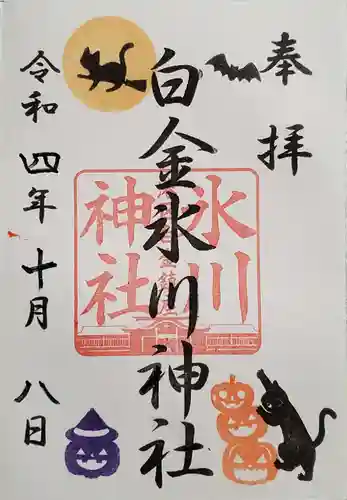 奉拝
白金氷川神社
氷川
神社
令和四年十月八日